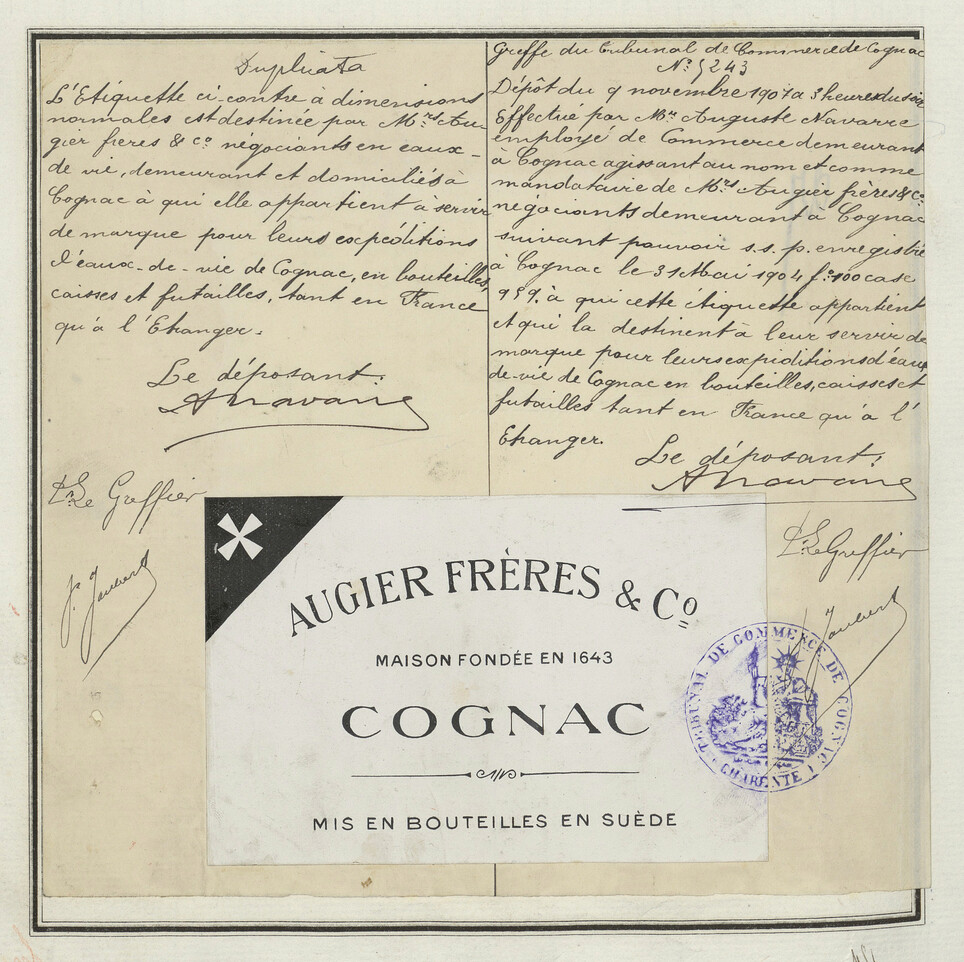 Duplicata
L'Etiquette ci-contre à dimensions
normales est destinée par Mrs Au-
gier frères & Co négociants en eaux-
de vie, demeurant et domiciliés à
Cognac à qui elle appartient à servir
de marque pour leurs expéditions
d'eaux-de-vie de Cognac, en bouteilles,
caisses et futailles, tant en France
qu'à l'Etranger.
Le déposant:
ANavarre
Pr Le Greffier
Greffe du tribunal de Commerce de Cognac
No 5243
Dépôt du 9 novembre 1907 à 3 heures du soir
Effectué par Mr Auguste Navarre
employé de Commerce demeurant
à Cognac agissant au nom et comme
mandataire de Mrs Augier frères & Co
négociants demeurant à Cognac
suivant pouvoir s.s.p. enregistré
à Cognac le 31 Mai 1904 fo 100 case
959. à qui cette étiquette appartient
et qui la destinent à leur servir de
marque pour leurs expiditions d'eaux
de-vie de Cognac en bouteilles, caisses et
futailles tant en France qu'à l'
Etranger.
Le déposant:
ANavarre
Pr Le Greffier
AUGIER FRÈRES & Co
MAISON FONDÉE EN 1643
COGNAC
MIS EN BOUTEILLES EN SUÈDE
TRIBUNAL DE COMMENCE DE COGNAC
CHARENTE